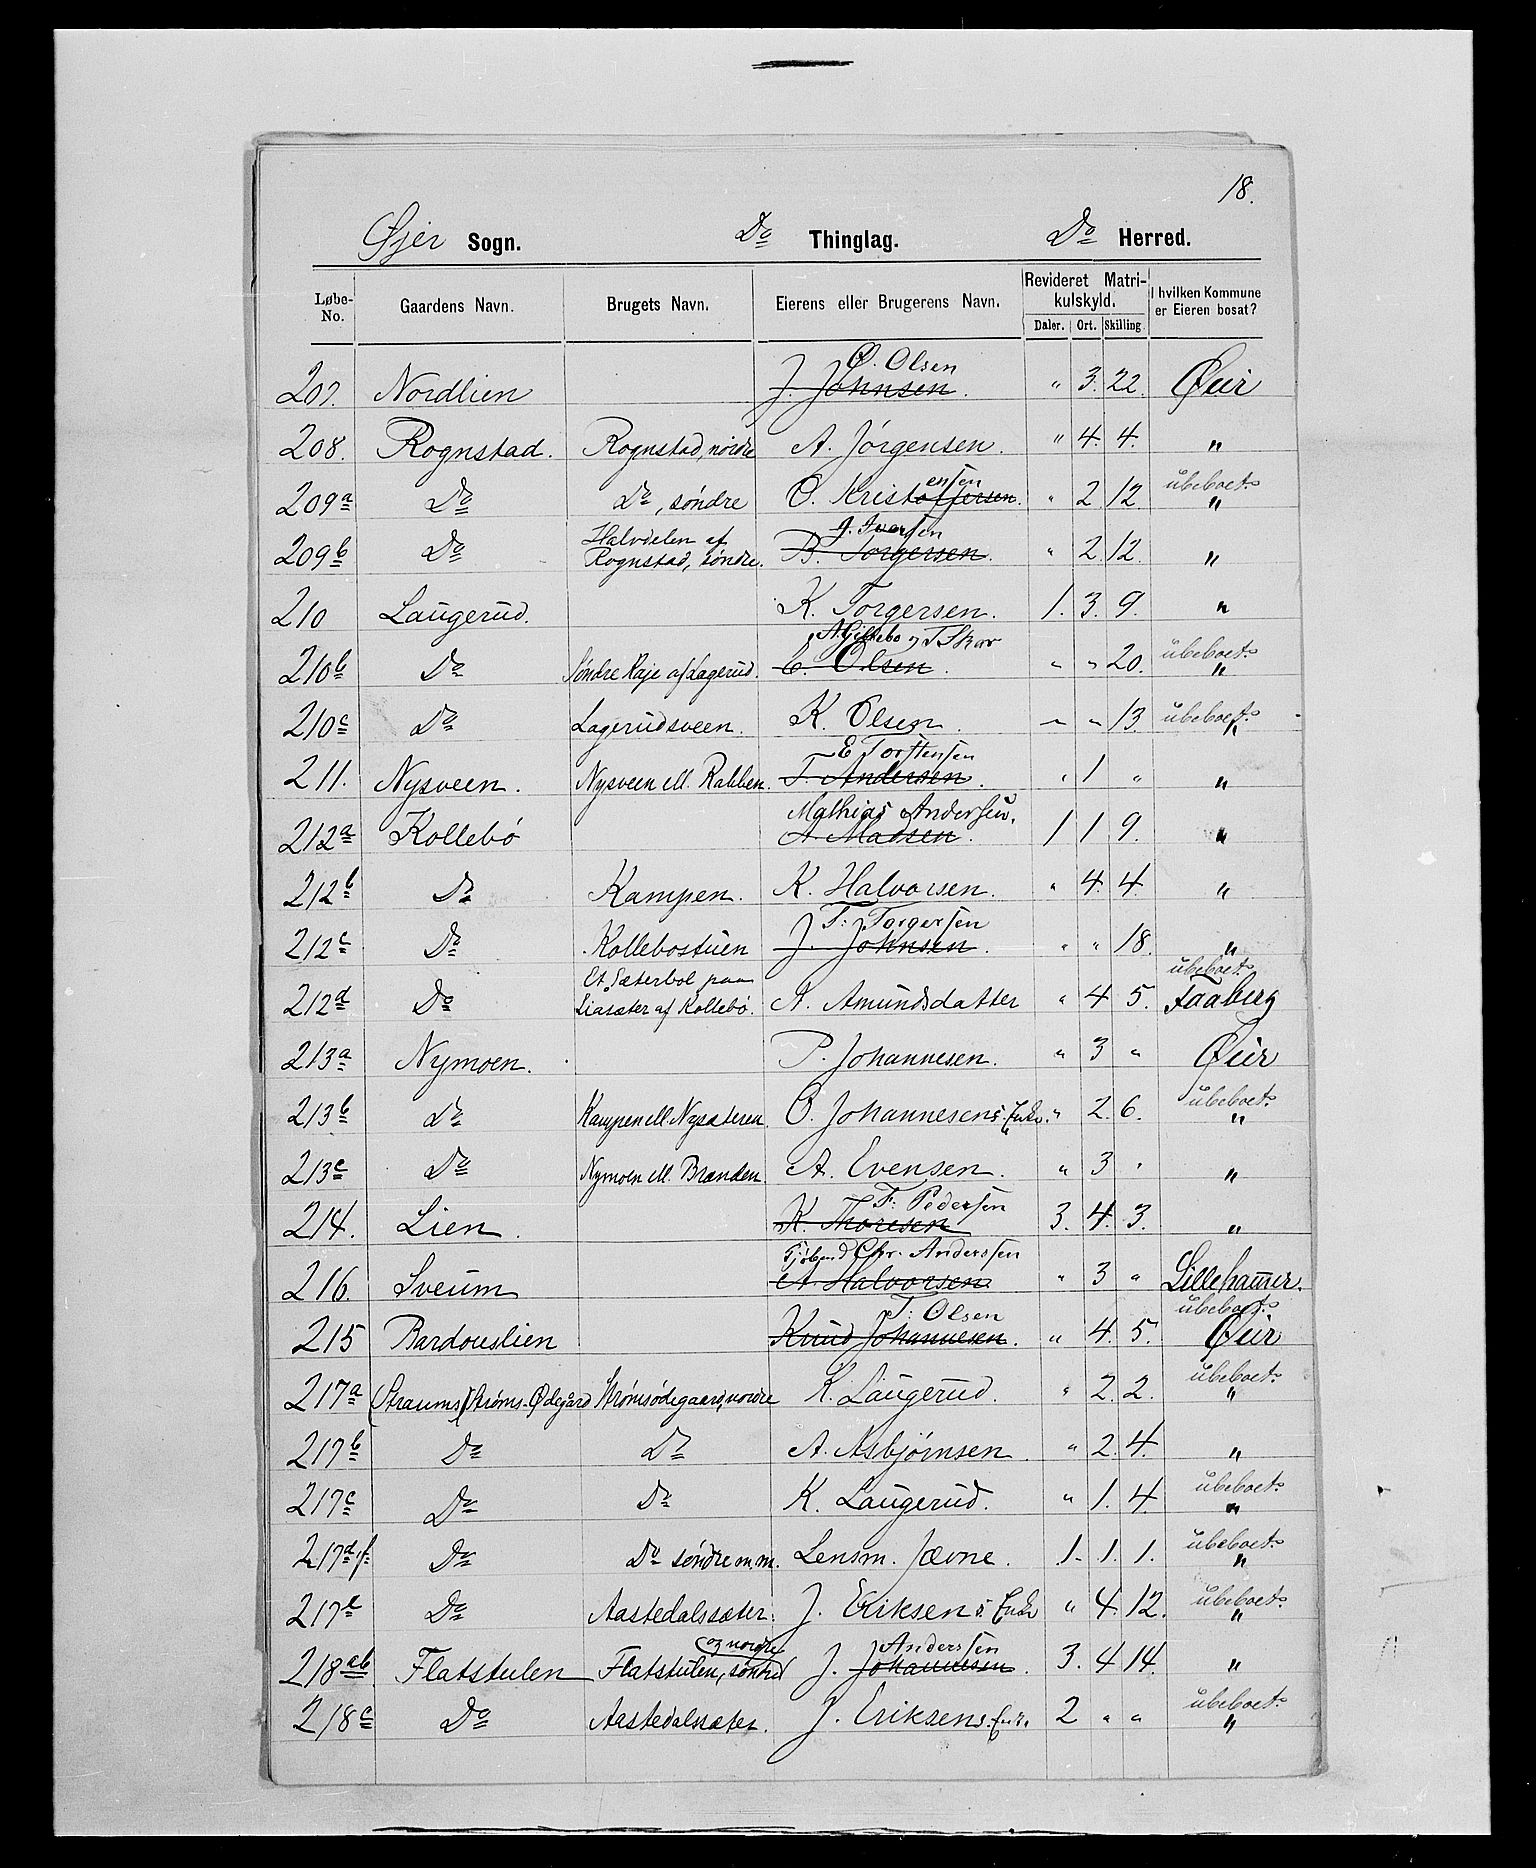 18.
Øjer Sogn. Do Thinglag. Do Herred.
Løbe-No. Gaardens Navn. Brugets Navn. Eierens eller Brugerens Navn. Revideret Matrikulskyld. Daler. Ort. Skilling I hvilken Kommune er Eieren bosat?
O. Olsen
207. Nordlien J. Johnsen. " 3. 22. Øier
208. Rognstad. Rognstad, nordre A. Jörgensen. " 4. 4. "
ensen ubeboet.
209a Do Do, söndre O. Kristoffersen. " 2 12. "
Halvdelen af J. Iversen
209b Do Rognstad, söndre. B. Torgersen. " 2. 12. "
210 Laugerud. K. Torgersen. 1. 3. 9. "
T Skar ubeboet.
210b Do Söndre Raje af Lagerud. E. Olsen. " " 20. "
210c Do Lagerudsveen. K. Olsen. " " 13. ubeboet. "
E Torstensen
211. Nysveen. Nysveen ell. Rabben. T. Andersen. " 1 " "
Mathias Andersen.
212a Kollebö A. Madsen. 1 1 9. "
212b Do Kampen. K. Halvorsen. " 4. 4. "
T. Torgersen
212c Do Kollebostuen J. Johnsen. " " 18. "
Et Sæterbol paa ubeboet.
212d Do Liasæter af Kollebö. A. Amundsdatter " 4 5. Faaberg
213a Nymoen. P. Johannesen. " 3 " Øier
213b Do Kampen ell. Nysæteren. O. Johannesens Enke. " 2. 6. ubeboet. "
213c Do Nymoen ell. Brænden. A. Evensen. " 3 " "
F. Pedersen
214. Lien. K. Thoresen 3. 4. 3. "
Chr. Anderssen
216. Sveum A. Halvorsen. " 3 " Lillehamer.
T. Olsen ubeboet.
215 Bardouslien Knud Johannesen. " 4. 5. Øier
217a (Straums) Ströms-Ødegård Strömsödegaard, nordre K. Laugerud. " 2. 2. ubeboet. "
217b Do Do A. Asbjörnsen. " 2. 4. "
217c Do Do K. Laugerud. " 1. 4 ubeboet. "
217d,f Do Do söndre m.m. Lensm. Jævne. 1. 1. 1. ubeboet. "
217e Do Aastedalssæter. J. Eriksens Enke " 4. 12. ubeboet. "
og nordre Anderssen
218ab Flatstulen Flatstulen, söndre J. Johannesen. 3. 4 14. "
218c Do Aastedalsæter. J. Eriksens Enke. 2 " " ubeboet. "